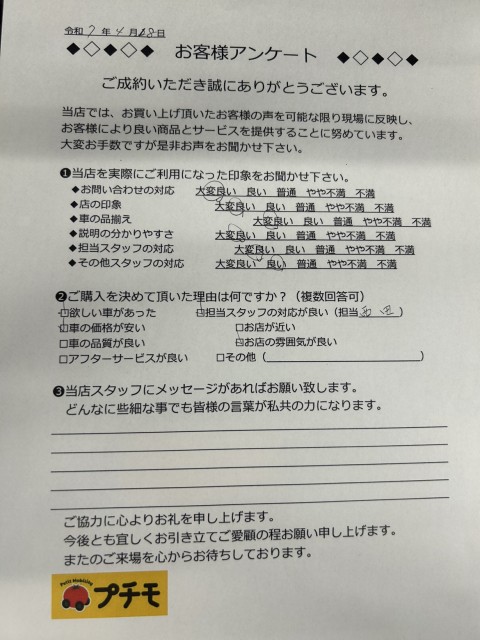 令和 7 年 4 月 18 日
◆◇◆◇◆ お客様アンケート ◆◇◆◇◆
ご成約いただき誠にありがとうございます。
当店では、お買い上げ頂いたお客様の声を可能な限り現場に反映し、
お客様により良い商品とサービスを提供することに努めています。
大変お手数ですが是非お声をお聞かせ下さい。
❶当店を実際にご利用になった印象をお聞かせ下さい。
◆お問い合わせの対応 大変良い 良い 普通 やや不満 不満
◆店の印象 大変良い 良い 普通 やや不満 不満
◆車の品揃え 大変良い 良い 普通 やや不満 不満
◆説明の分かりやすさ 大変良い 良い 普通 やや不満 不満
◆担当スタッフの対応 大変良い 良い 普通 やや不満 不満
◆その他スタッフの対応 大変良い 良い 普通 やや不満 不満
❷ご購入を決めて頂いた理由は何ですか？（複数回答可）
□欲しい車があった □担当スタッフの対応が良い（担当 ）
□車の価格が安い □お店が近い
□車の品質が良い □お店の雰囲気が良い
□アフターサービスが良い □その他（ ）
❸当店スタッフにメッセージがあればお願い致します。
どんなに些細な事でも皆様の言葉が私共の力になります。
ご協力に心よりお礼を申し上げます。
今後とも宜しくお引き立てご愛顧の程お願い申し上げます。
またのご来場を心からお待ちしております。
Petit Mobiling
プチモ